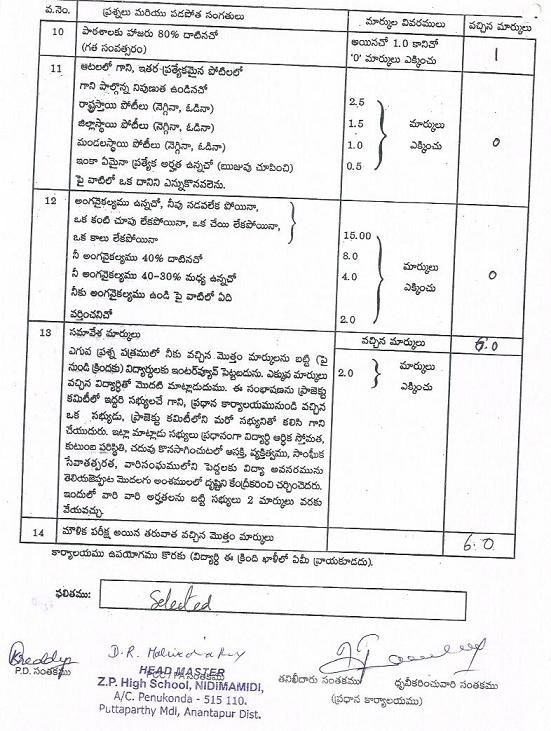 వ.నెం. ప్రశ్నలు మరియు పడపోత సంగతులు మార్కుల వివరములు వచ్చిన మార్కులు
10 పాఠశాలకు హాజరు 80% దాటినచో అయినచో 1.0 కానిచో 1
(గత సంవత్సరం) '0' మార్కులు ఎక్కించు
11 ఆటలలో గాని, ఇతర ప్రత్యేకమైన పోటీలలో
గాని పాల్గొన్న నిపుణుత ఉండినచో
రాష్ట్రస్థాయి పోటీలు (నెగ్గినా, ఓడినా) 2.5
జిల్లాస్థాయి పోటీలు (నెగ్గినా, ఓడినా) 1.5 మార్కులు
మండలస్థాయి పోటీలు (నెగ్గినా, ఓడినా) 1.0 ఎక్కించు 0
ఇంకా ఏమైనా ప్రత్యేక అర్హత ఉన్నచో (ఋజువు చూపించి) 0.5
పై వాటిలో ఒక దానిని ఎన్నుకొనవలెను.
12 అంగవైకల్యము ఉన్నచో, నీవు నడవలేక పోయినా,
ఒక కంటి చూపు లేకపోయినా, ఒక చేయి లేకపోయినా,
ఒక కాలు లేకపోయినా 15.00
నీ అంగవైకల్యము 40% దాటినచో 8.0 మార్కులు
నీ అంగవైకల్యము 40-30% మధ్య ఉన్నచో 4.0 ఎక్కించు 0
నీకు అంగవైకల్యము ఉండి పై వాటిలో ఏది
వర్తించనిచో 2.0
13 సమావేశ మార్కులు వచ్చిన మార్కులు 6.0
ఎగువ ప్రశ్న పత్రములో నీకు వచ్చిన మొత్తం మార్కులను బట్టి (పై
నుండి క్రిందకు) విద్యార్థులకు ఇంటర్వ్యూవ్ పెట్టబడును. ఎక్కువ మార్కులు 2.0 మార్కులు
వచ్చిన విద్యార్థితో మొదటి మాట్లాడుదుము. ఈ సంభాషణను ప్రాజెక్టు ఎక్కించు
కమిటీలో ఇద్దరి సభ్యులచే గాని, ప్రధాన కార్యాలయమునుండి వచ్చిన
ఒక సభ్యుడు, ప్రాజెక్టు కమిటీలోని మరో సభ్యునితో కలిసి గాని
చేయుదురు. ఇట్లా మాట్లాడు సభ్యులు ప్రధానంగా విద్యార్థి ఆర్థిక స్తోమత,
కుటుంబ పరిస్థితి, చదువు కొనసాగించుటలో ఆసక్తి, వ్యక్తిత్వము, సాంఘీక
సేవాతత్పరత, వారిసంఘములోని పెద్దలకు విద్యా అవసరమును
తెలియజెప్పుట మొదలగు అంశములలో దృష్టిని కేంద్రీకరించి చర్చించెదరు.
ఇందులో వారి వారి అర్హతలను బట్టి సభ్యులు 2 మార్కులు వరకు
వేయవచ్చు.
14 మౌఖిక పరీక్ష అయిన తరువాత వచ్చిన మొత్తం మార్కులు 6.0
కార్యాలయము ఉపయోగము కొరకు (విద్యార్థి ఈ క్రింది ఖాళీలో ఏమీ వ్రాయకూడదు).
ఫలితము: Selected
Reddy D.R.
P.D. సంతకము సంతకము తనిఖీదారు సంతకము ధృవీకరించువారి సంతకము
(ప్రధాన కార్యాలయము)
HEAD MASTER
Z.P. High School, NIDIMAMIDI,
A/C. Penukonda - 515 110.
Puttaparthy Mdl, Anantapur Dist.